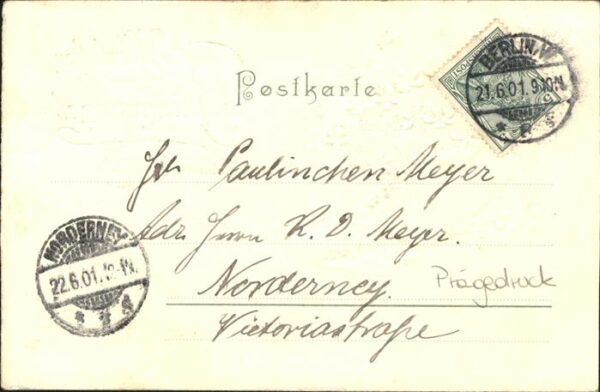 Postkarte
BERLIN, W.
21.6.01.9-10N.
Paulinchen Meyer
Adr. Herrn R. D. Meyer.
NORDERNEY
22.6.01.12-1N.
Norderney.
Prägedruck
Victoriastraße